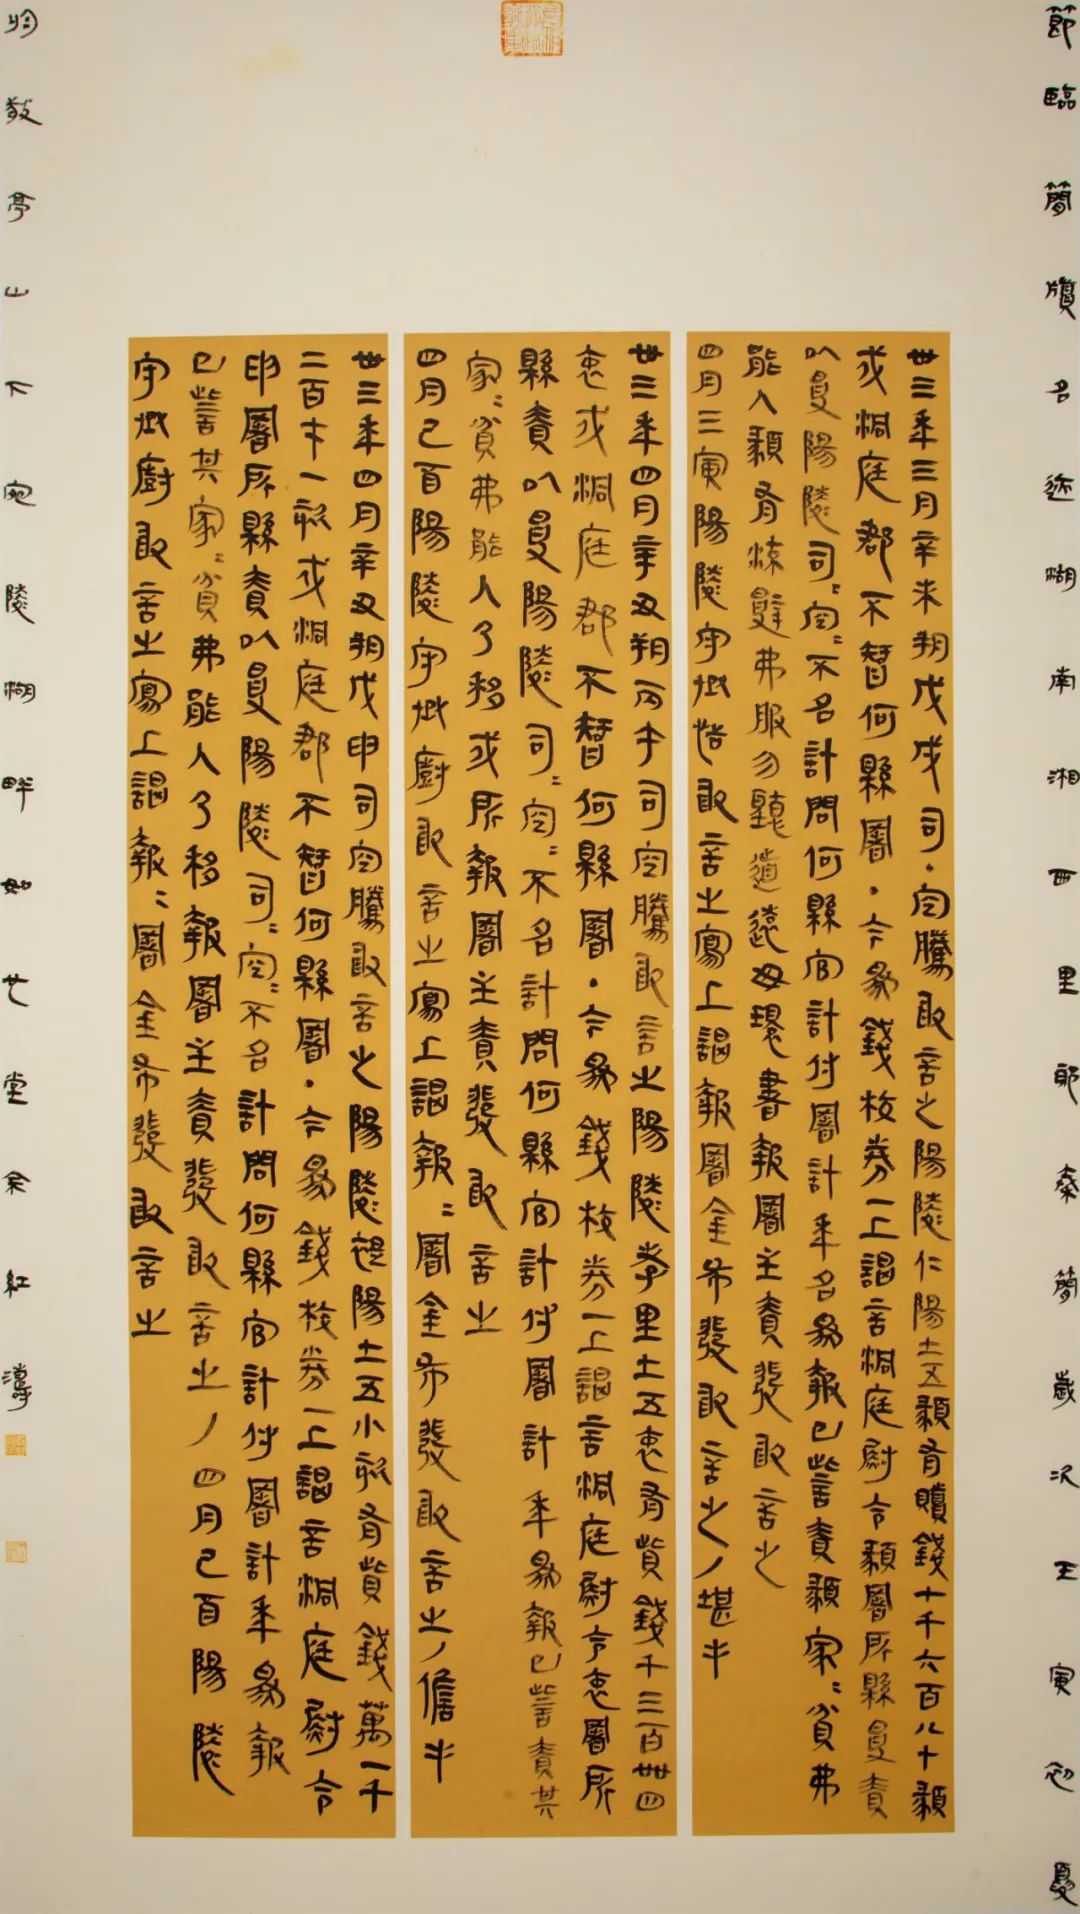 節臨簡牘名迹湖南湘西里耶秦簡歲次壬寅初夏
卅三年三月辛未朔戊戌司·空騰敢言之陽陵仁陽士五顝有贖錢七千六百八十顝
戍洞庭郡不智何縣署·今為錢校券一上謁言洞庭尉令顝署所縣受責
以受陽陵司゠空゠不名計問何縣官計付署計年名為報已訾責顝家゠貧弗
能入顝有流辭弗服勿聽道遠毋環書報署主責發敢言之
四月壬寅陽陵守丞恬敢言之寫上謁報署金布發敢言之/堪手
卅三年四月辛丑朔丙午司空騰敢言之陽陵孝里士五衷有貲錢千三百卌四
衷戍洞庭郡不智何縣署·今為錢校券一上謁言洞庭尉令衷署所
縣責以受陽陵司゠空゠不名計問何縣官計付署計年為報已訾責其
家゠貧弗能入乃移戍所報署主責發敢言之
四月己酉陽陵守丞廚敢言之寫上謁報゠署金布發敢言之/儋手
卅三年四月辛丑朔戊申司空騰敢言之陽陵褆陽士五小欬有貲錢萬一千
二百七十一欬戍洞庭郡不智何縣署·今為錢校券一上謁言洞庭尉令
申署所縣責以受陽陵司゠空゠不名計問何縣官計付署計年為報
已訾其家゠貧弗能入乃移報署主責發敢言之/四月己酉陽陵
守丞廚敢言之寫上謁報゠署金布發敢言之
於敬亭山下宛陵湖畔如也堂余紅濤